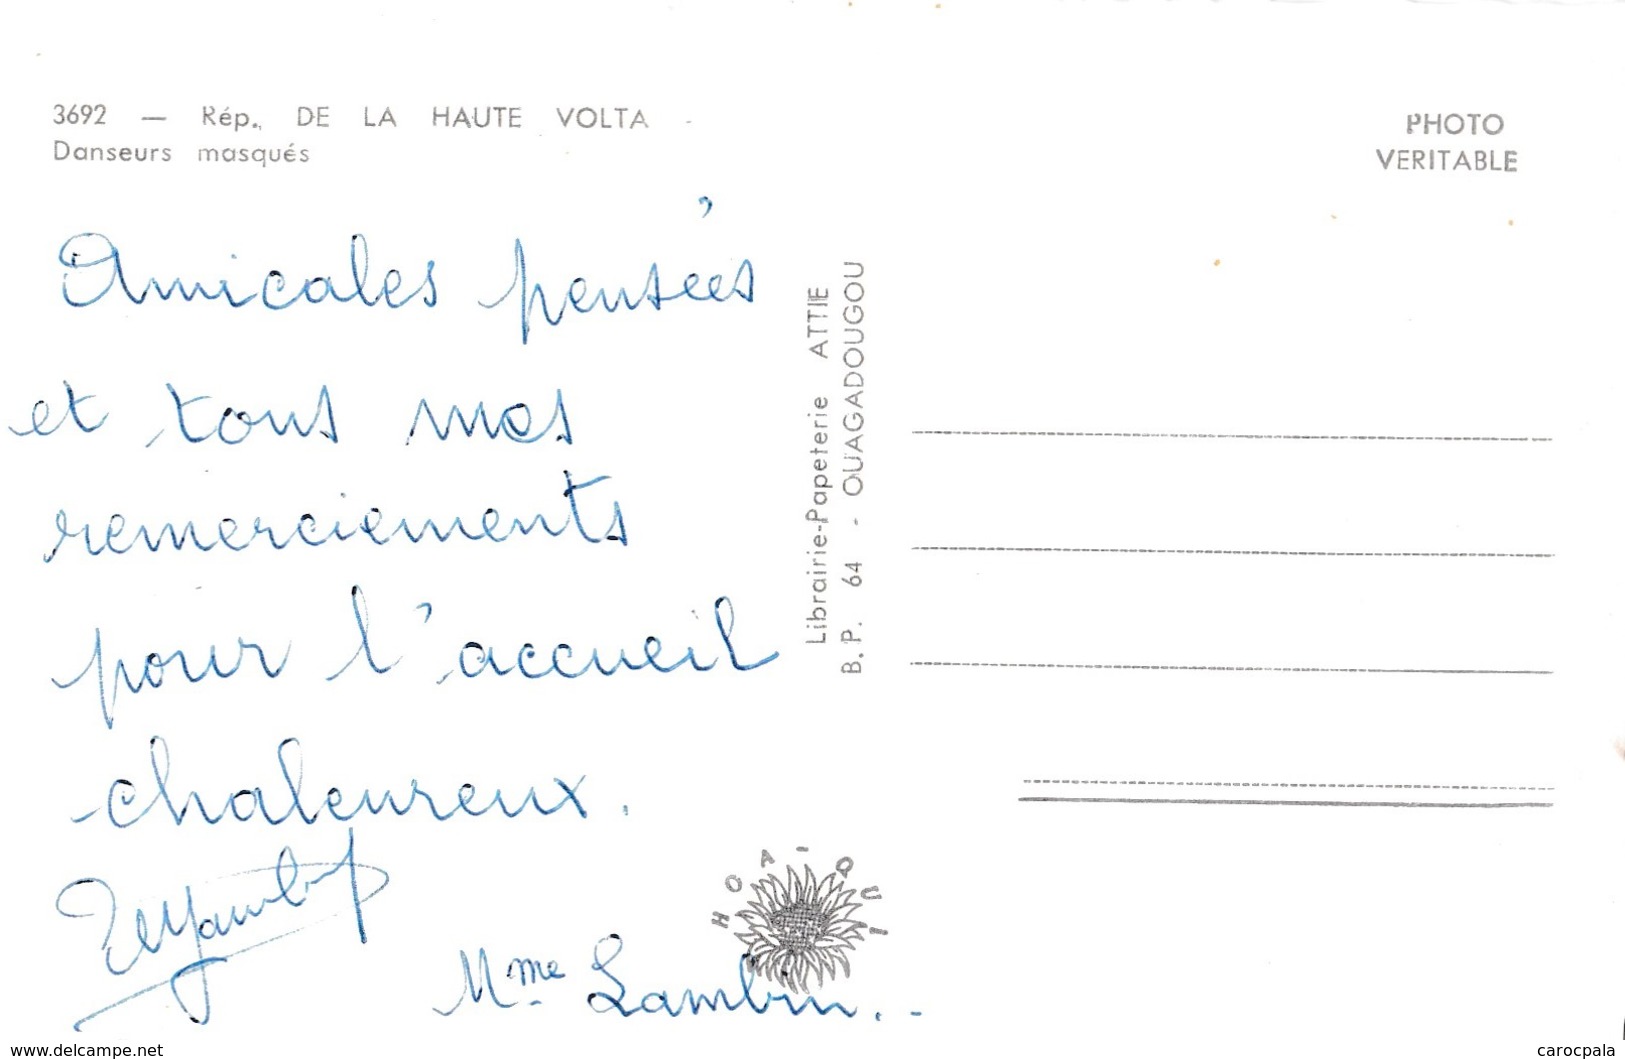 3692 — Rép. DE LA HAUTE VOLTA
Danseurs masqués
PHOTO
VERITABLE
Amicales pensées
et tous mes
remerciements
pour l'accueil
chaleureux.
Mme Lambin..
Librairie-Papeterie ATTIE
B.P. 64 - OUAGADOUGOU
HOA-QUI
www.delcampe.net
carocpala